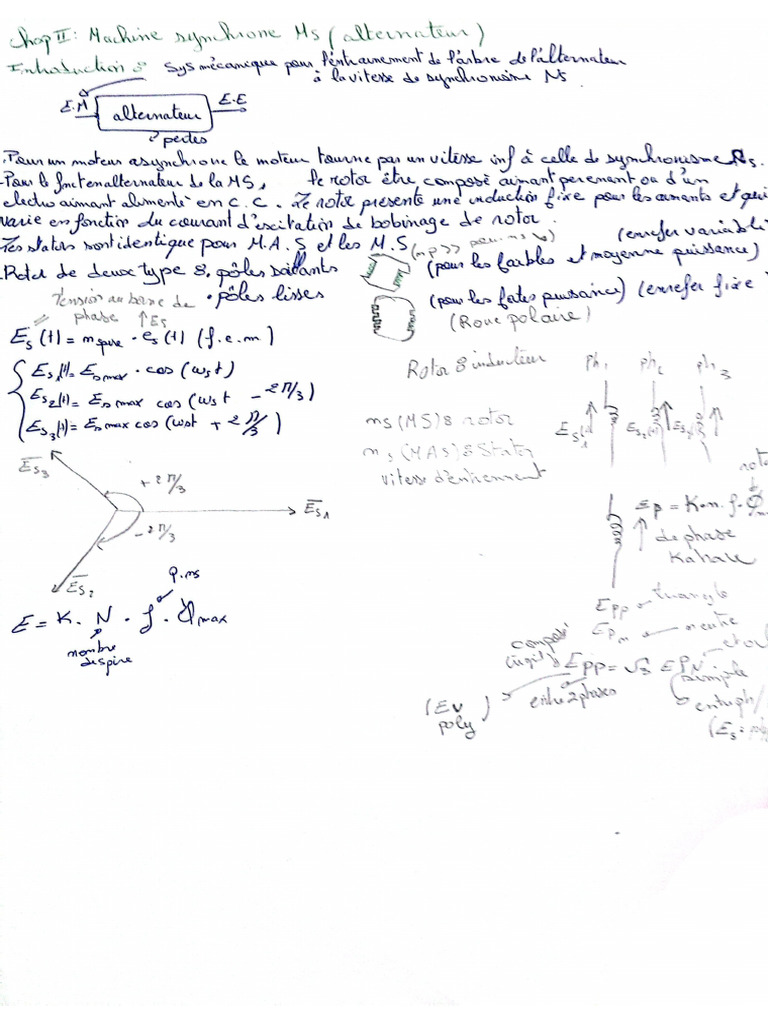 Chap II : Machine synchrone MS (alternateur)
Introduction : Sys mécanique pour l'entrainement de l'arbre de l'alternateur
à la vitesse de synchronisme Ns
E.M alternateur E.E
pertes
Pour un moteur asynchrone le moteur tourne par un vitesse inf à celle de synchronisme Ns.
Pour le font en alternateur de la MS, le rotor être composé aimant perement ou d'un
electro aimant alimenté en C.C. Le rotor présente une induction fixe pour les aimants et qui
varie en fonction du courant d'excitation de bobinage de rotor.
Les stators sont identique pour M.A.S et les M.S
(entrefer variable)
- Rotor de deux type : • pôles saillants (pour les faibles et moyenne puissance)
• pôles lisses (pour les fortes puissances) (entrefer fixe
(Roue polaire)
Tension au borne de
phase ↑Es
Es(t) = • es(t) (f.e.m)
Es1(t) = Esmax • cos(wst)
Es2(t) = Esmax cos(wst - 2π/3)
Es3(t) = Esmax cos(wst + 2π/3)
Rotor : inducteur
Ph1 Ph2 ph3
ns (MS) : rotor
ns (MAS) : Stator
vitesse
Es1(t) Es2(t) Es3
Es3 + 2π/3
Es1
- 2π/3
Es2
Ep = K.n.f.Φm
de phase
P.ns
E = K. N • f • Φmax
nombre
despire
Epp triangle
Epn neutre
composé
Epp = √3 EPN
simple
entre 2 phases
(Ev
poly)